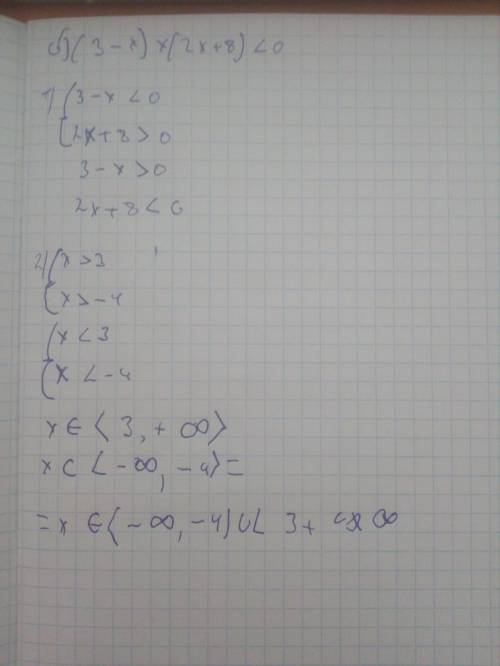 б) (3-x) x (2x+8) < 0
1) { 3-x < 0
{ 2x+8 > 0
3-x > 0
2x+8 < 0
2) { x > 3
{ x > -4
{ x < 3
{ x < -4
x ∈ ⟨ 3, + ∞⟩
x ⊂ ⟨ -∞, -4⟩ =
= x ∈ (-∞, -4) ∪ ⟨ 3 + ∞